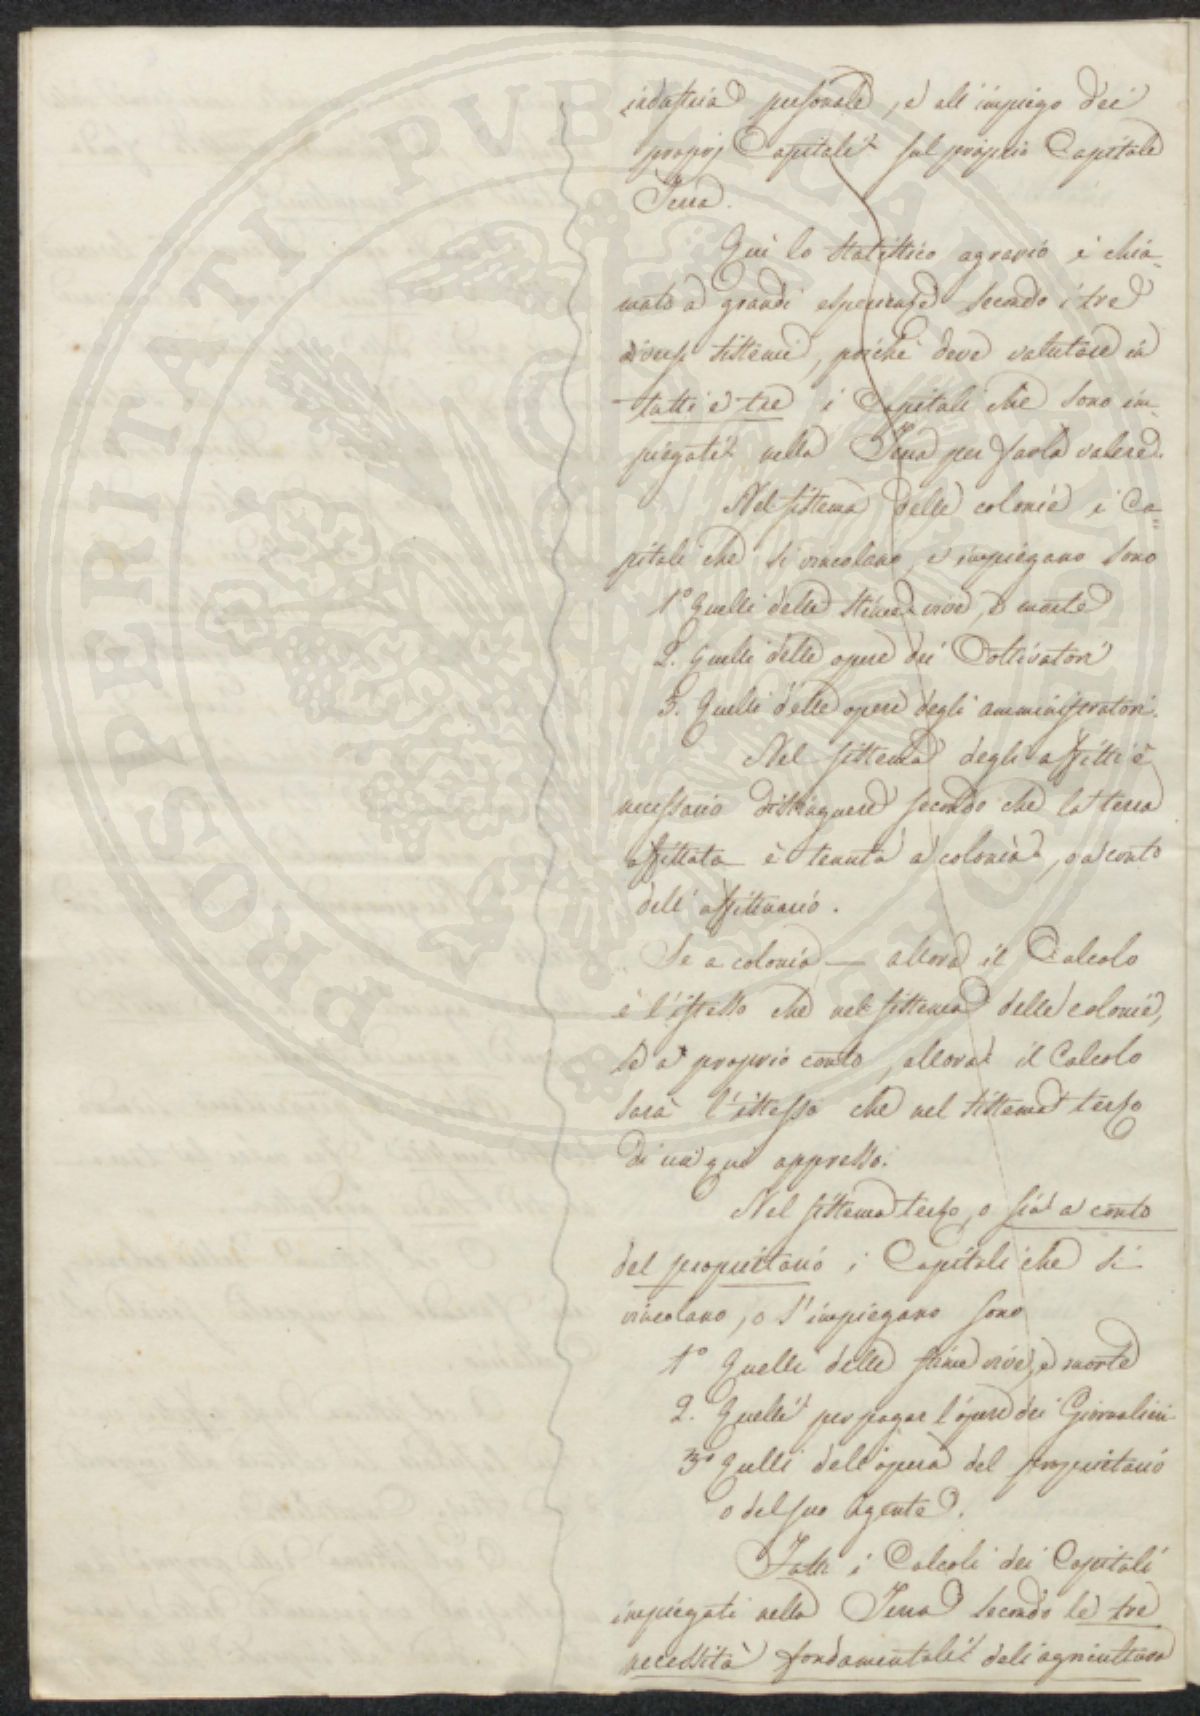 industria personale, e all'impiego dei
proprj Capitali sul proprio Capitale
Terra.
Qui lo Statistico agrario è chia-
mato a grandi esperienze secondo i tre
diversi sistemi, poichè deve valutare in
tutti e tre i Capitali che sono im-
piegati nella Terra per farla valere.
Nel sistema delle colonie i Ca-
pitali che si vincolano, e impiegano sono
1° Quelli delle stime vive, e morte
2. Quelli delle opere dei Coltivatori
3. Quelli delle opere degli amministratori.
Nel sistema degli affitti è
necessario distinguere secondo che la terra
affittata è tenuta a colonia, o a conto
dell'affittuario.
Se a colonia — allora il Calcolo
è l'istesso che nel sistema delle colonie,
se a proprio conto, allora il Calcolo
sarà l'istesso che nel sistema terzo
di cui qui appresso.
Nel sistema terzo, o sia a conto
del proprietario i Capitali che si
vincolano, o s'impiegano sono
1° Quelli delle stime vive, e morte
2. Quelli per pagar l'opere dei Giornalieri
3° Quelli dell'opera del proprietario
o del suo Agente.
Fatti i Calcoli dei Capitali
impiegati nella Terra secondo le tre
necessità fondamentali dell'agricultura
PROSPERITATI PUBLICAE